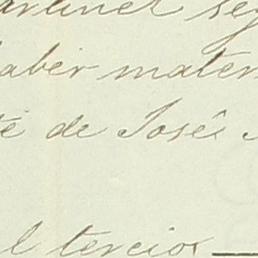 artinez seg
aber mater
te de José
l tercior